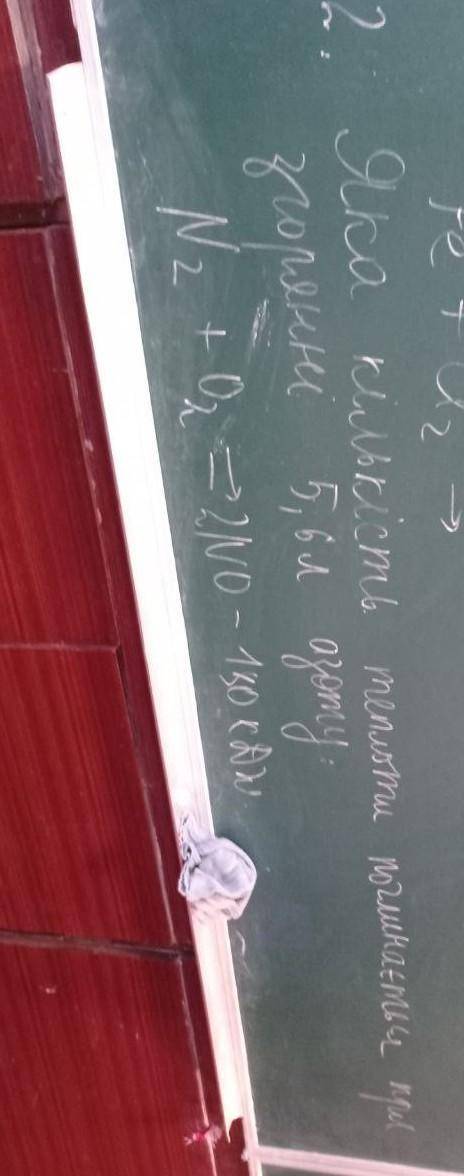 Fe + Cl₂ →
2. Яка кількість теплоти поглинається при
згорянні 5,6 л азоту:
N₂ + O₂ ⇒ 2NO - 180 кДж